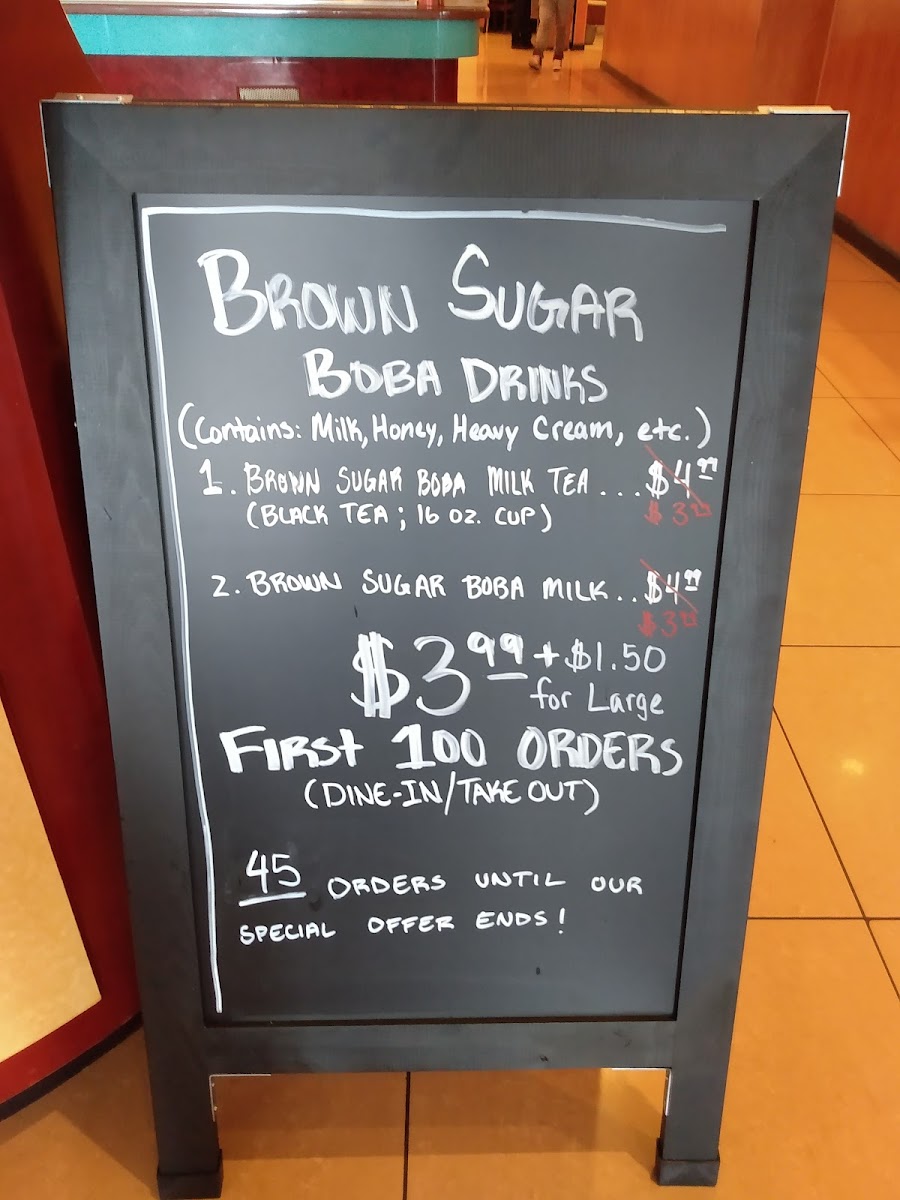 BROWN SUGAR
BOBA DRINKS
(Contains: Milk, Honey, Heavy Cream, etc.)
1. BROWN SUGAR BOBA MILK TEA ... $4.99
(BLACK TEA; 16 OZ. CUP) $3.99
2. BROWN SUGAR BOBA MILK .. $4.99
$3.99
$3.99 + $1.50
for Large
FIRST 100 ORDERS
(DINE-IN/TAKE OUT)
45 ORDERS UNTIL OUR
SPECIAL OFFER ENDS!